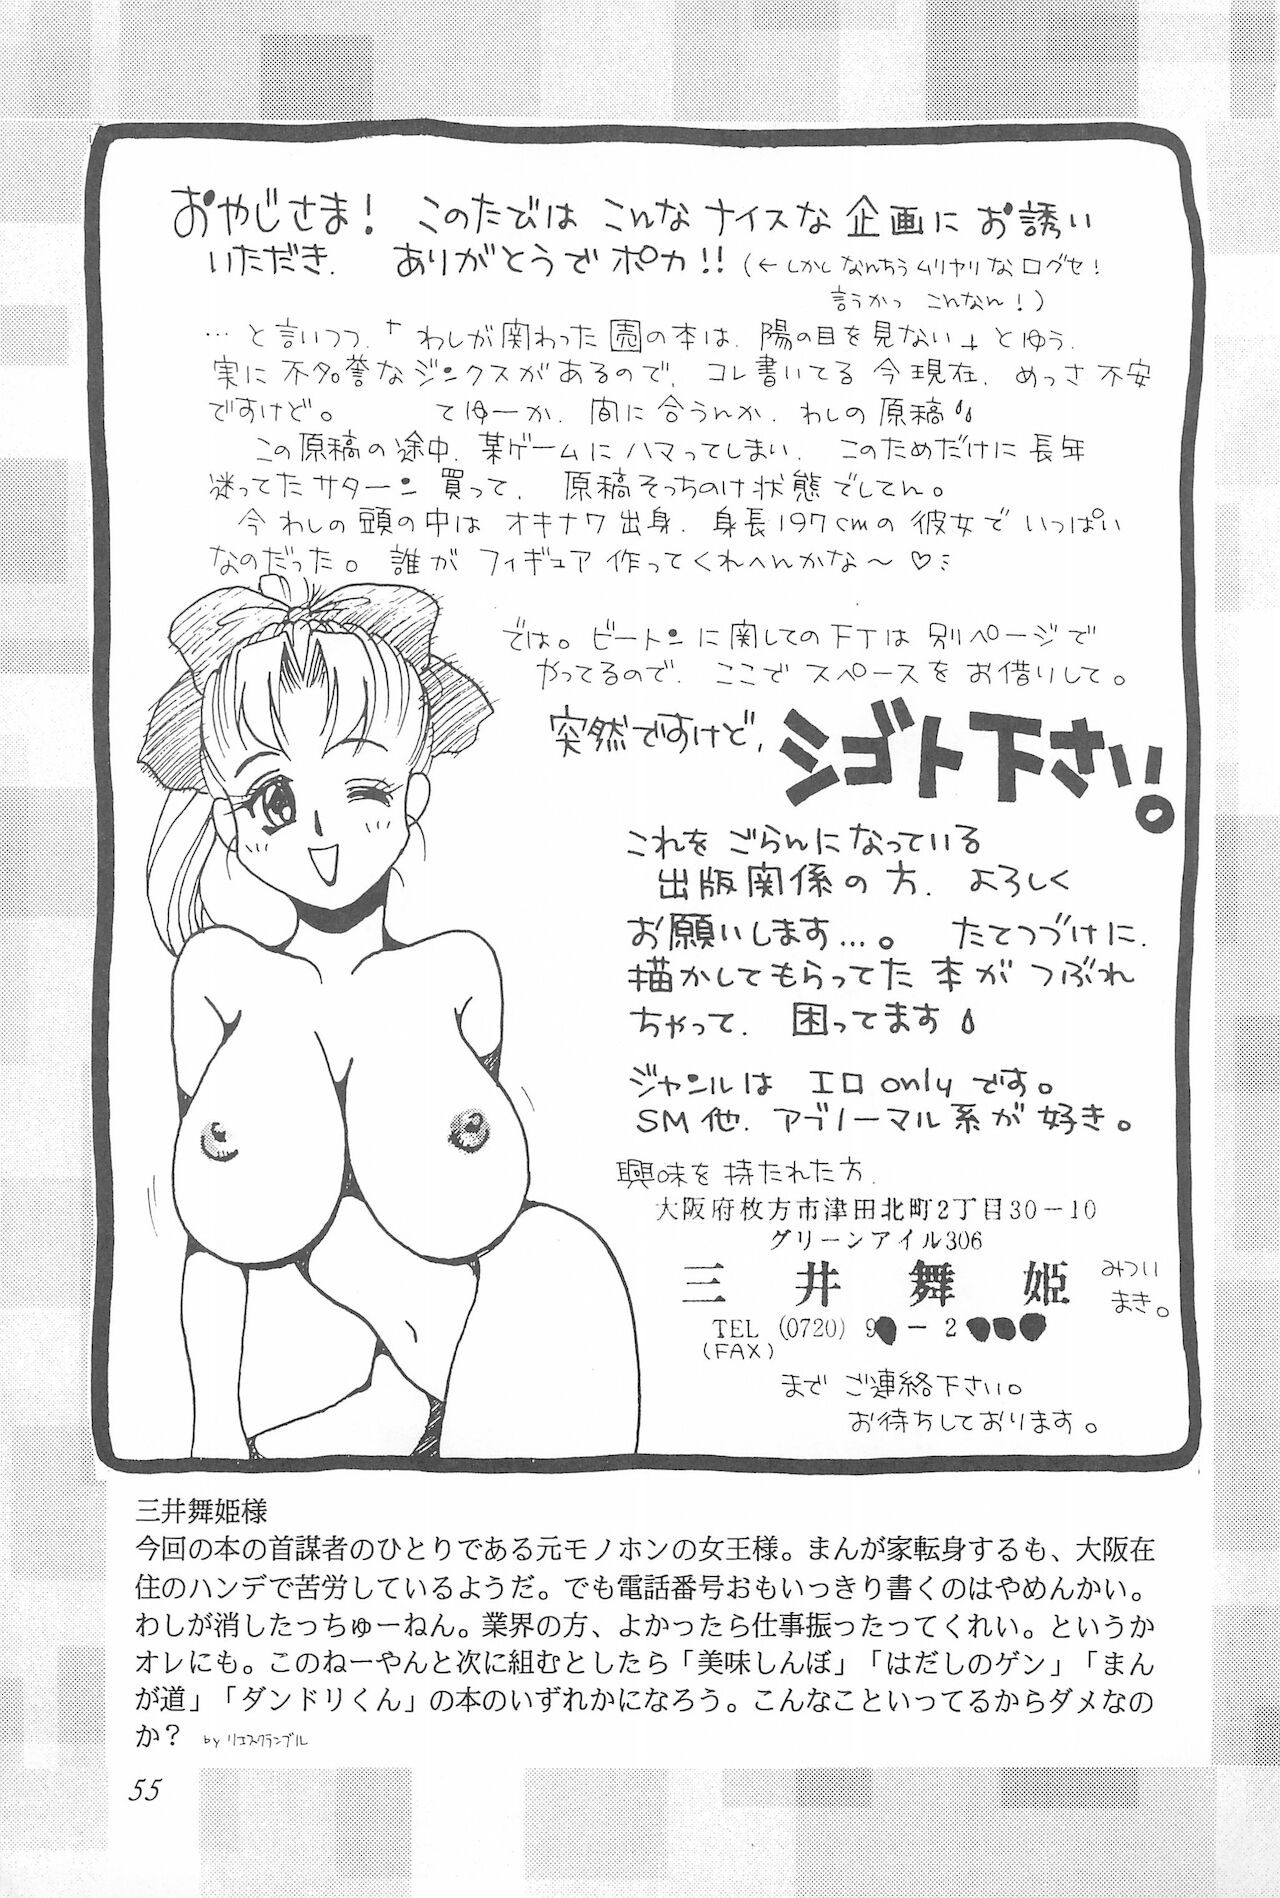 おやじさま! このたびは こんな ナイスな 企画に お誘い
いただき. ありがとうでポカ!! (←しかしなんちうムリヤリな口グセ!
言うかっ こんなん!)
…と言いつつ.「わしが関わった園の本は. 陽の目を見ない」とゆう.
実に不名誉なジンクスがあるので. コレ書いてる今現在. めっさ不安
ですけど。 てゆーか. 間に合うんか. わしの原稿
この原稿の途中. 某ゲームにハマってしまい. このためだけに長年
迷ってたサターン買って. 原稿そっちのけ状態でしてん。
今わしの頭の中は オキナワ出身. 身長197cmの彼女でいっぱい
なのだった。誰が フィギュア作ってくれへんかな～♡
では。ビートンに関してのFTは別ページで
やってるので. ここでスペースをお借りして。
突然ですけど, シゴト下さい。
これを ごらんになっている
出版関係の方. よろしく
お願いします…。 たてつづけに.
描かしてもらってた本が つぶれ
ちゃって. 困ってます
ジャンルは エロonlyです。
SM他. アブノーマル系が好き。
興味を持たれた方.
大阪府枚方市津田北町2丁目30－10
グリーンアイル306
三井舞姫 みつい
まき。
TEL (0720) 9 － 2
(FAX)
まで ご連絡下さい。
お待ちしております。
三井舞姫様
今回の本の首謀者のひとりである元モノホンの女王様。まんが家転身するも、大阪在
住のハンデで苦労しているようだ。でも電話番号おもいっきり書くのはやめんかい。
わしが消したっちゅーねん。業界の方、よかったら仕事振ったってくれい。というか
オレにも。このねーやんと次に組むとしたら「美味しんぼ」「はだしのゲン」「まん
が道」「ダンドリくん」の本のいずれかになろう。こんなこといってるからダメなの
か？ by リエスクランブル
55